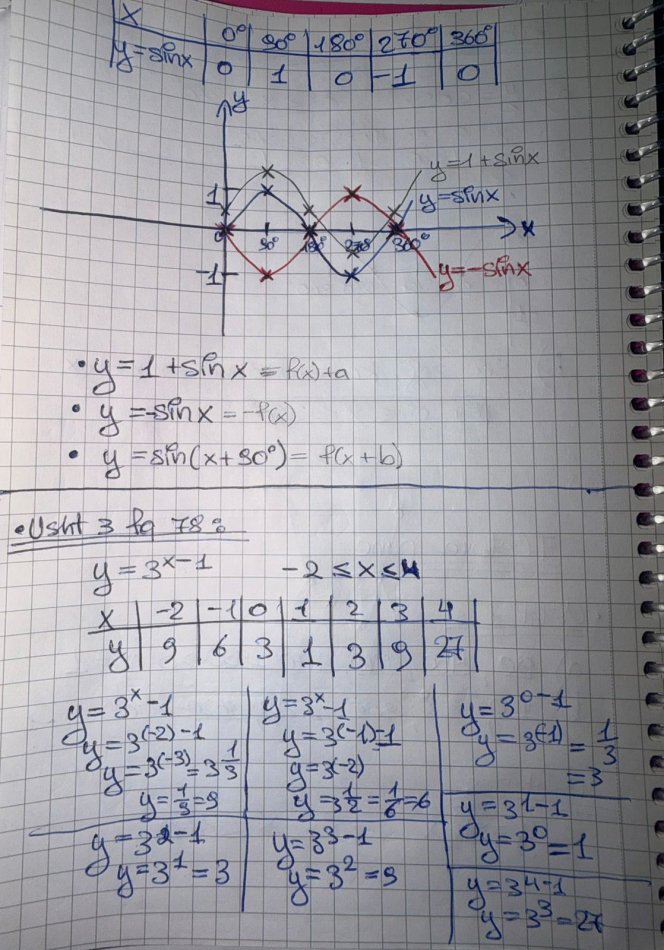 x 0° 90° 180° 270° 360°
y=sinx 0 1 0 -1 0
y
y=1+sinx
1
y=sinx
0 90° 180° 270° 360° x
-1
y=-sinx
• y=1+sinx=f(x)+a
• y=-sinx=-f(x)
• y=sin(x+90°)=f(x+b)
• Usht 3 fq 78:
y=3^x-1 -2≤x≤4
x -2 -1 0 1 2 3 4
y 9 6 3 1 3 9 27
y=3^x-1 y=3^x-1 y=3^0-1
y=3^(-2)-1 y=3^(-1)-1 y=3^(-1)=1/3
y=3^(-3)=3 1/3 y=3(-2) =3
y=1/9=9 y=3 1/2=1/6=6 y=3^1-1
y=3^2-1 y=3^3-1 y=3^0=1
y=3^1=3 y=3^2=9 y=3^4-1
y=3^3=27